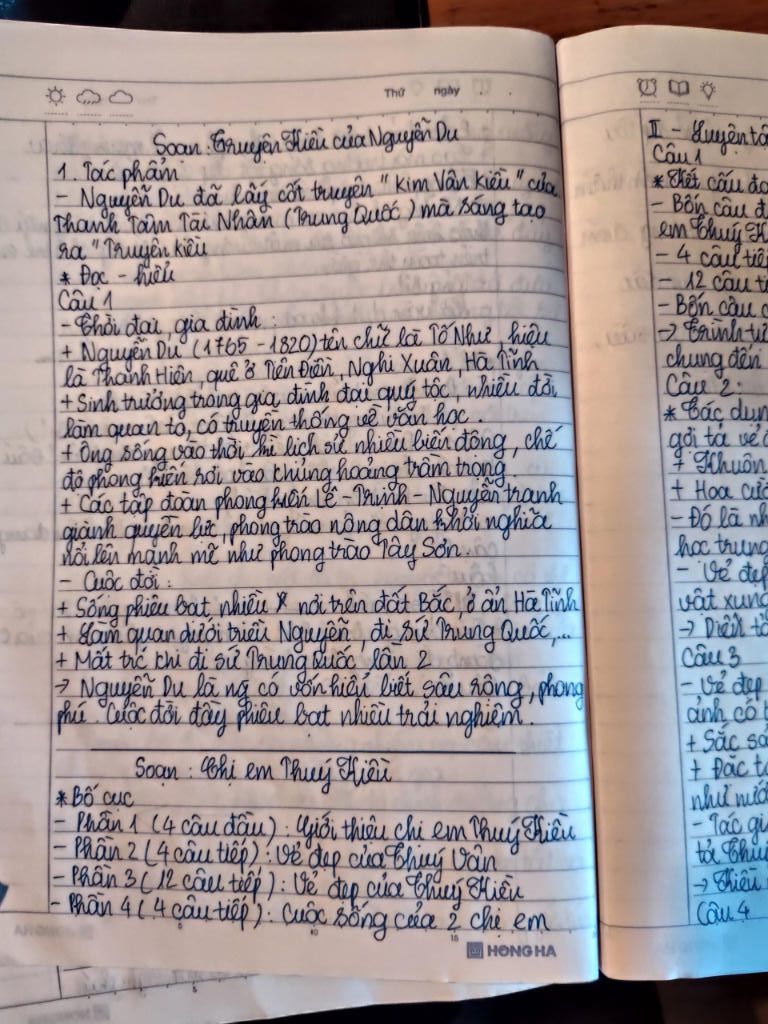 Thứ ngày
Soạn: Truyện Kiều của Nguyễn Du
1. Tác phẩm
- Nguyễn Du đã lấy cốt truyện "Kim Vân Kiều" của
Thanh Tâm Tài Nhân (Trung Quốc) mà sáng tạo
ra "Truyện Kiều
* Đọc - hiểu
Câu 1
- Thời đại, gia đình:
+ Nguyễn Du (1765 - 1820) tên chữ là Tố Như, hiệu
là Thanh Hiên, quê ở Tiên Điền, Nghi Xuân, Hà Tĩnh
+ Sinh trưởng trong gia đình đại quý tộc, nhiều đời
làm quan to, có truyền thống về văn học.
+ Ông sống vào thời kì lịch sử nhiều biến động, chế
độ phong kiến rơi vào khủng hoảng trầm trọng.
+ Các tập đoàn phong kiến Lê - Trịnh - Nguyễn tranh
giành quyền lực, phong trào nông dân khởi nghĩa
nổi lên mạnh mẽ như phong trào Tây Sơn.
- Cuộc đời:
+ Sống phiêu bạt nhiều nơi trên đất Bắc, ở ẩn Hà Tĩnh
+ Làm quan dưới triều Nguyễn, đi sứ Trung Quốc,...
+ Mất trc khi đi sứ Trung Quốc lần 2
→ Nguyễn Du là ng có vốn hiểu biết sâu rộng, phong
phú. Cuộc đời đầy phiêu bạt nhiều trải nghiệm.
Soạn: Chị em Thuý Kiều
* Bố cục
- Phần 1 (4 câu đầu): Giới thiệu chị em Thuý Kiều
- Phần 2 (4 câu tiếp): Vẻ đẹp của Thuý Vân
- Phần 3 (12 câu tiếp): Vẻ đẹp của Thuý Kiều
- Phần 4 (4 câu tiếp): Cuộc sống của 2 chị em
HONG HA
II - Luyện
Câu 1
* Kết cấu
- Bốn câu
em Thuý
- 4 câu tiếp
- 12 câu
- Bốn câu
→ Trình tự
chung đến
Câu 2:
* Tác
gợi tả vẻ
+ Khuôn
+ Hoa
- Đó là
học trung
- Vẻ đẹp
vật
→
Câu 3
- Vẻ đẹp
ảnh có
+ Sắc
+ Đặc
như
- Tác
tả
→
Câu 4